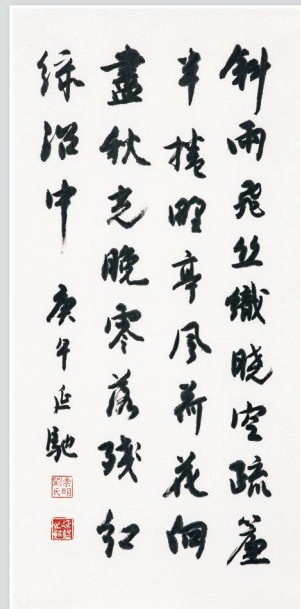 斜雨飛丝織晓空疏簾
半捲野亭風荷花向
盡秋光晚零落残红
綠沼中 庚午延馳